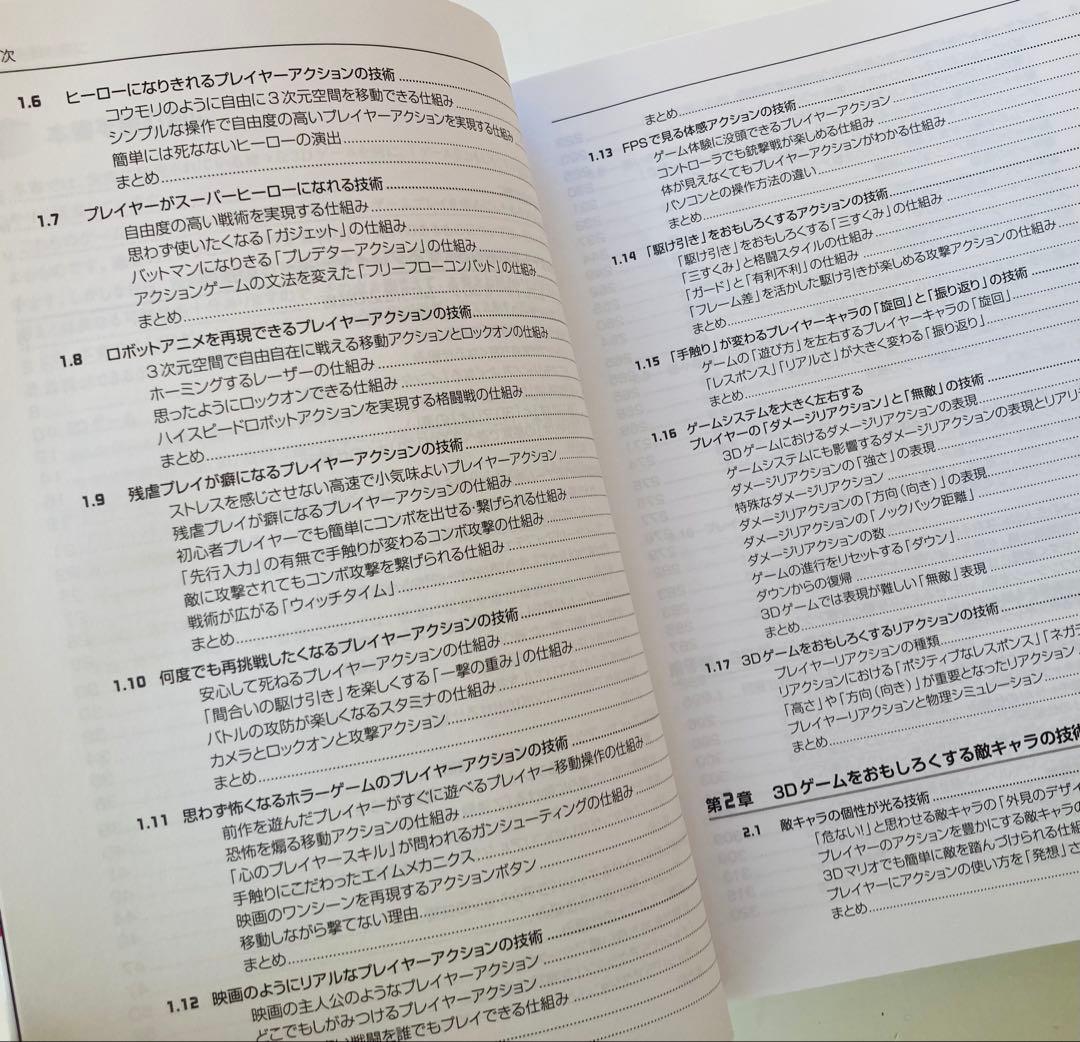 次
1.6 ヒーローになりきれるプレイヤーアクションの技術
コウモリのように自由に3次元空間を移動できる仕組み
シンプルな操作で自由度の高いプレイヤーアクションを実現する仕組み
簡単には死なないヒーローの演出
まとめ
1.7 プレイヤーがスーパーヒーローになれる技術
自由度の高い戦術を実現する仕組み
思わず使いたくなる「ガジェット」の仕組み
バットマンになりきる「プレデターアクション」の仕組み
アクションゲームの文法を変えた「フリーフローコンバット」の仕組み
まとめ
1.8 ロボットアニメを再現できるプレイヤーアクションの技術
3次元空間で自由自在に戦える移動アクションとロックオンの仕組み
ホーミングするレーザーの仕組み
思ったようにロックオンできる仕組み
ハイスピードロボットアクションを実現する格闘戦の仕組み
まとめ
1.9 残虐プレイが癖になるプレイヤーアクションの技術
ストレスを感じさせない高速で小気味よいプレイヤーアクション
残虐プレイが癖になるプレイヤーアクションの仕組み
初心者プレイヤーでも簡単にコンボを出せる・繋げられる仕組み
「先行入力」の有無で手触りが変わるコンボ攻撃の仕組み
敵に攻撃されてもコンボ攻撃を繋げられる仕組み
戦術が広がる「ウィッチタイム」
まとめ
1.10 何度でも再挑戦したくなるプレイヤーアクションの技術
安心して死ねるプレイヤーアクションの仕組み
「間合いの駆け引き」を楽しくする「一撃の重み」の仕組み
バトルの攻防が楽しくなるスタミナの仕組み
カメラとロックオンと攻撃アクション
まとめ
1.11 思わず怖くなるホラーゲームのプレイヤーアクションの技術
前作を遊んだプレイヤーがすぐに遊べるプレイヤー移動操作の仕組み
恐怖を煽る移動アクションの仕組み
「心のプレイヤースキル」が問われるガンシューティングの仕組み
手触りにこだわったエイムメカニクス
映画のワンシーンを再現するアクションボタン
移動しながら撃てない理由
まとめ
1.12 映画のようにリアルなプレイヤーアクションの技術
映画の主人公のようなプレイヤーアクション
どこでもしがみつけるプレイヤーアクション
い戦闘を誰でもプレイできる仕組み
まとめ
1.13 FPSで見る体感アクションの技術
ゲーム体験に没頭できるプレイヤーアクション
コントローラでも銃撃戦が楽しめる仕組み
体が見えなくてもプレイヤーアクションがわかる仕組み
パソコンとの操作方法の違い
まとめ
1.14 「駆け引き」をおもしろくするアクションの技術
「駆け引き」をおもしろくする「三すくみ」の仕組み
「三すくみ」と格闘スタイルの仕組み
「ガード」と「有利不利」の仕組み
「フレーム差」を活かした駆け引きが楽しめる攻撃アクションの仕組み
まとめ
1.15 「手触り」が変わるプレイヤーキャラの「旋回」と「振り返り」の技術
ゲームの「遊び方」を左右するプレイヤーキャラの「旋回」
「レスポンス」「リアルさ」が大きく変わる「振り返り」
まとめ
1.16 ゲームシステムを大きく左右する
プレイヤーの「ダメージリアクション」と「無敵」の技術
3Dゲームにおけるダメージリアクションの表現
ゲームシステムにも影響するダメージリアクションの表現とリアリ
ダメージリアクションの「強さ」の表現
特殊なダメージリアクション
ダメージリアクションの「方向（向き）」の表現
ダメージリアクションの「ノックバック距離」
ダメージリアクションの数
ゲームの進行をリセットする「ダウン」
ダウンからの復帰
3Dゲームでは表現が難しい「無敵」表現
まとめ
1.17 3Dゲームをおもしろくするリアクションの技術
プレイヤーリアクションの種類
リアクションにおける「ポジティブなレスポンス」「ネガテ
「高さ」や「方向（向き）」が重要となったリアクション
プレイヤーリアクションと物理シミュレーション
まとめ
第2章 3Dゲームをおもしろくする敵キャラの技術
2.1 敵キャラの個性が光る技術
「危ない！」と思わせる敵キャラの「外見のデザイ
プレイヤーのアクションを豊かにする敵キャラの
3Dマリオでも簡単に敵を踏んづけられる仕組
プレイヤーにアクションの使い方を「発想」さ
まとめ